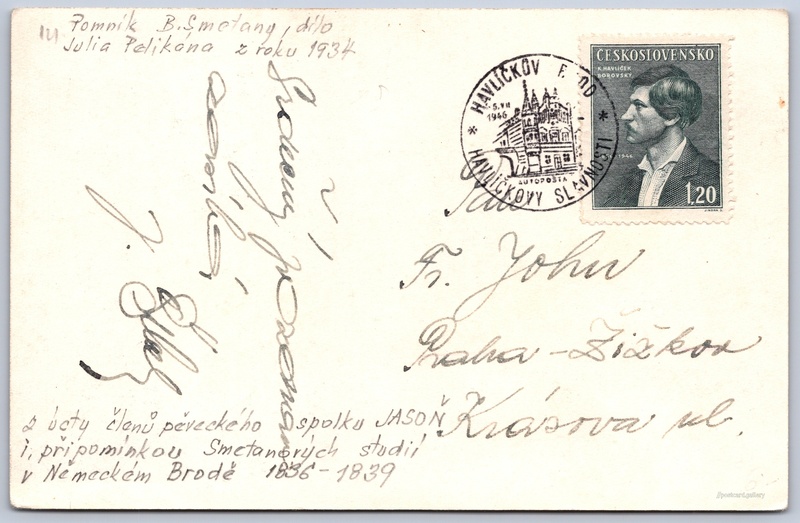 Pomník B. Smetany, dílo
Julia Pelikána z roku 1934
ČESKOSLOVENSKO
K. HAVLÍČEK
BOROVSKÝ
1946
1,20
HAVLÍČKŮV BROD
5. VII
1946
AUTOPOŠTA
HAVLÍČKOVY SLAVNOSTI
Srdečný pozdrav
J.
Fr. John
Praha-Žižkov
Krásova ul.
z úcty členů pěveckého spolku JASOŇ
i, připomínkou Smetanových studií
v Německém Brodě 1836-1839
@postcard.gallery